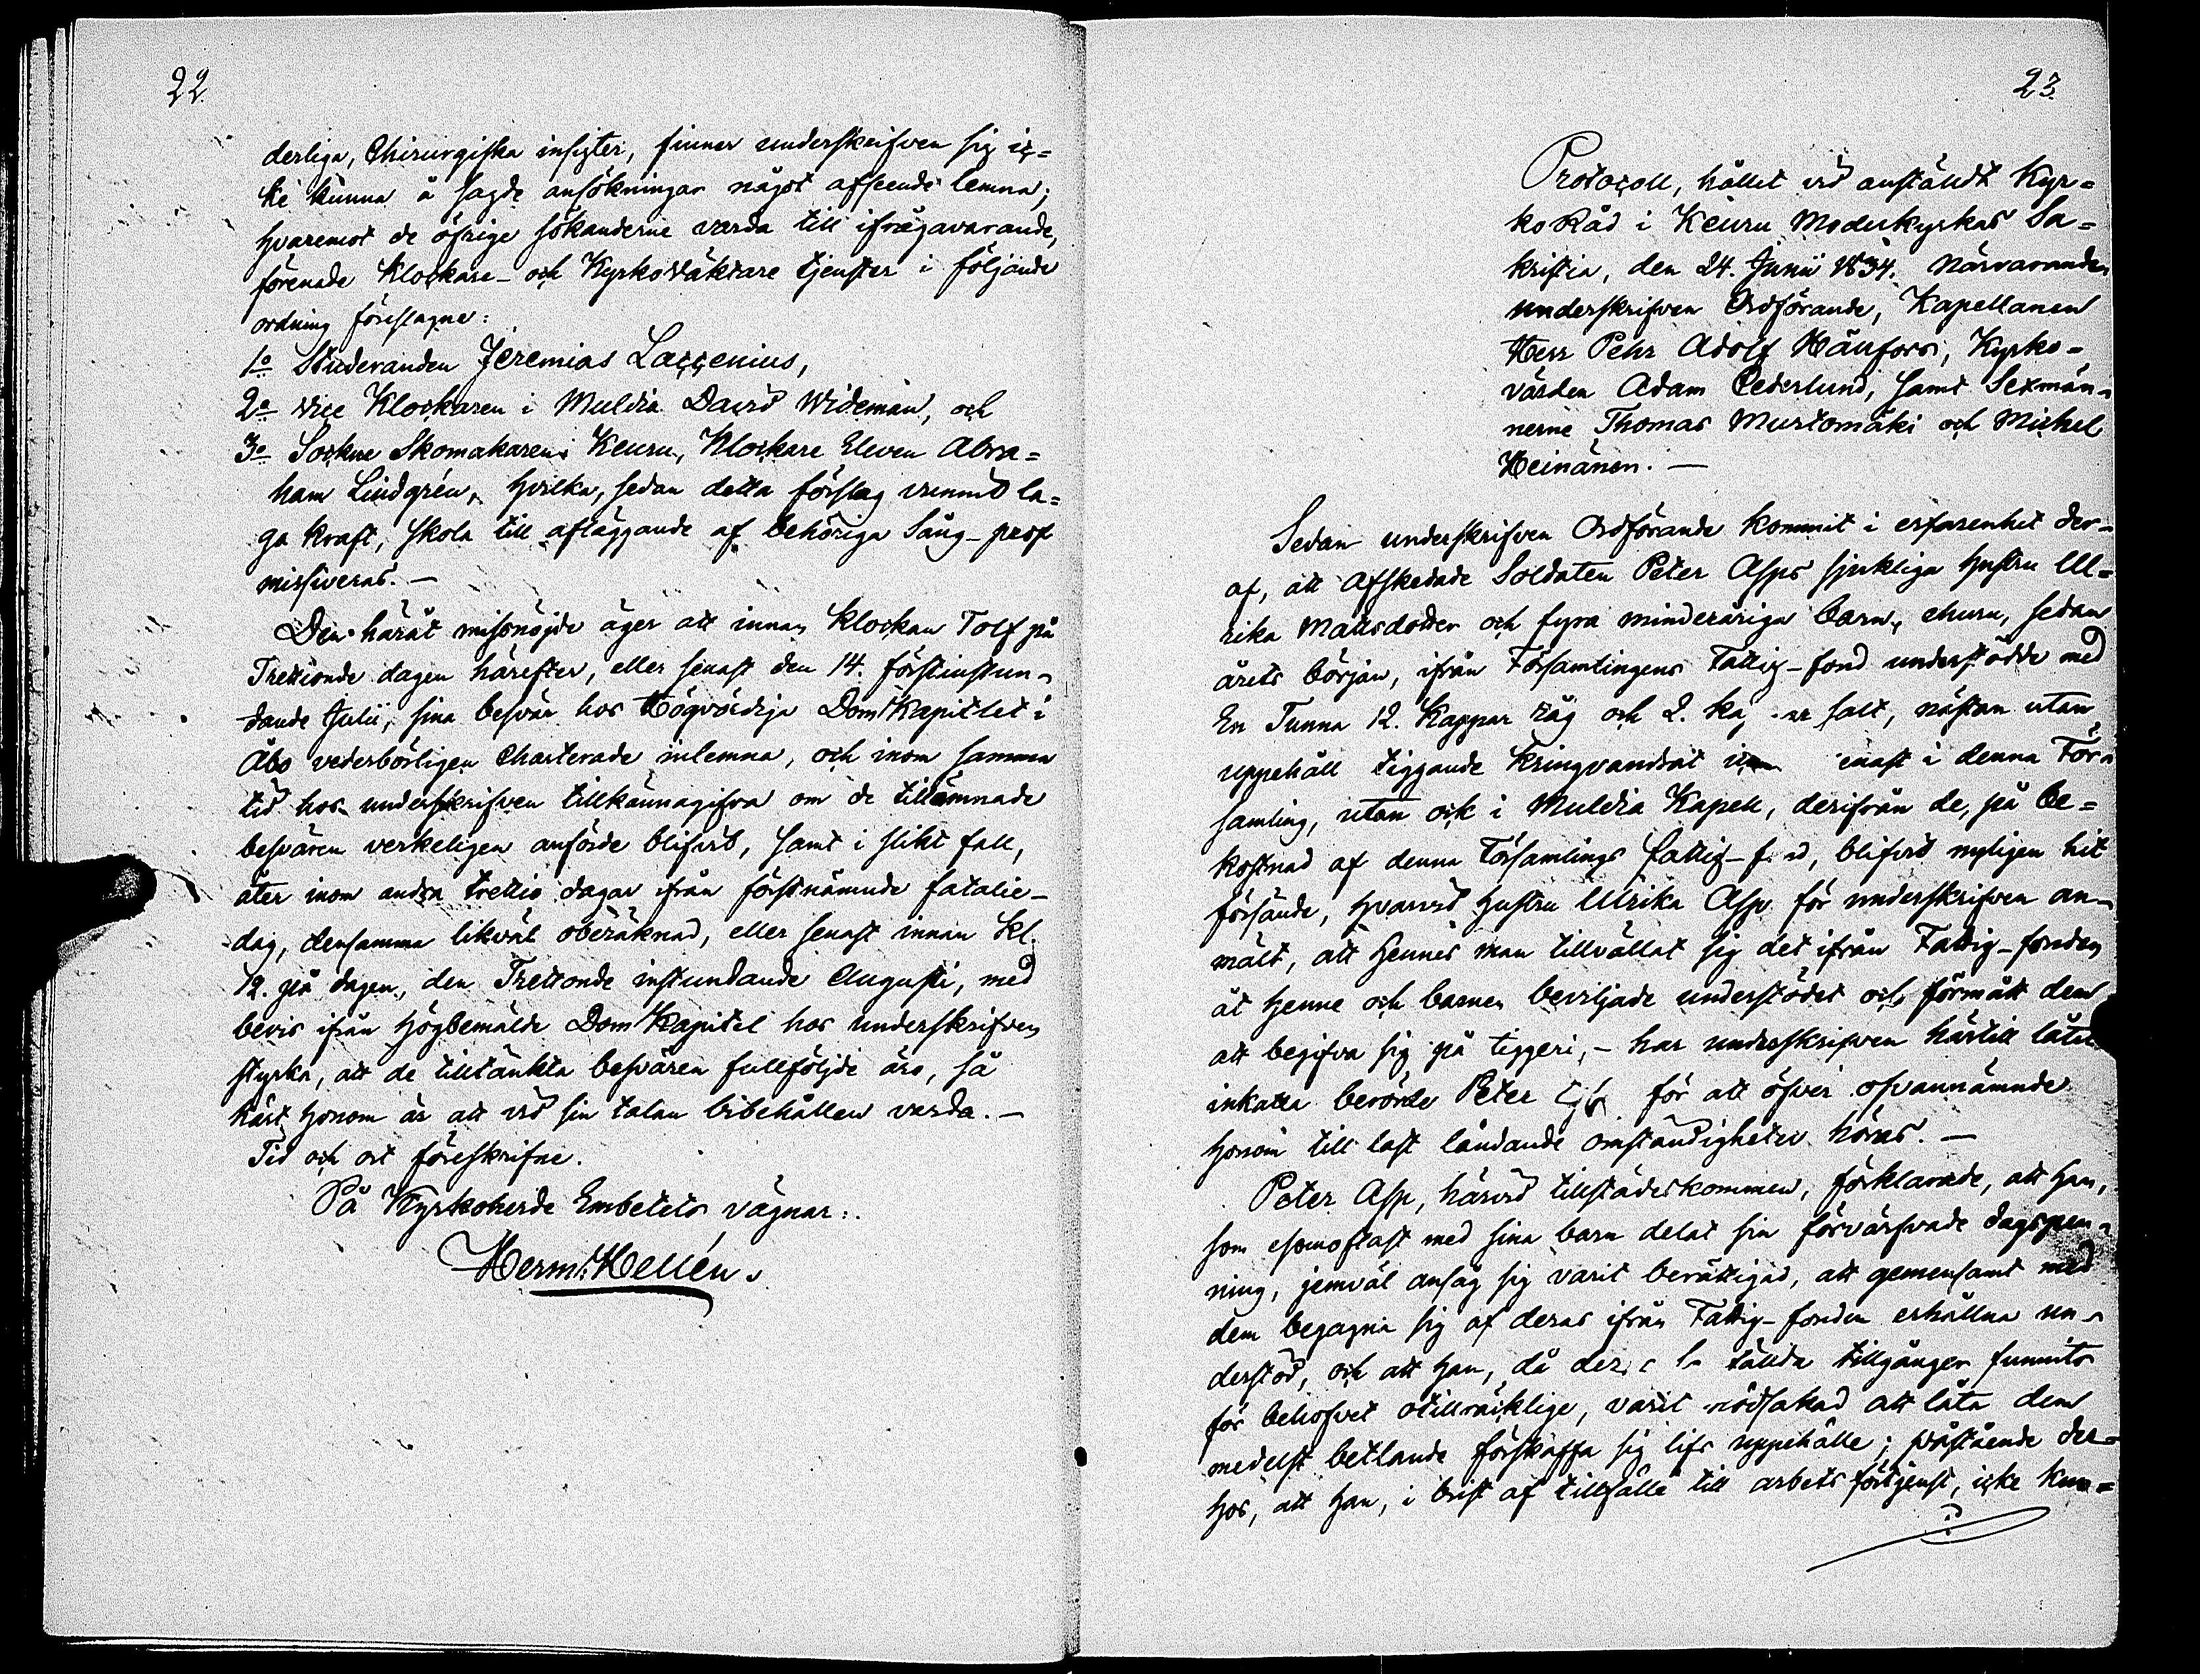 22.
derliga, Chirurgiska insigter, finner underskrifven sig ic=
ke kunna å sagde ansökningar något afseende lemna;
hvaremot de öfrige sökanderne varda till ifrågavarande,
förenade Klockare- och Kyrkoväktare tjenster i följande
ordning föreslagne:
1o Studeranden Jeremias Laccenius,
2o Vice Klockaren i Muldia David Wideman, och
3o Sockne Skomakaren i Keuru, Klockare Eleven Abra=
ham Lindgrén, hvilka, sedan detta förslag vunnit la=
ga kraft, skola till afläggande af behöriga Sång-prof
missiveras. —
Den häråt missnöjde äger att innan Klockan Tolf på
Trettionde dagen härefter, eller senast den 14. förstinstun-
dande Julii, sina besvär hos Högvördige DomKapitlet i
Åbo vederbörligen Charterade inlemna, och inom samma
tid hos underskrifven tillkännagifva om de tillämnade
besvären verkeligen anförde blifvit, samt i slikt fall,
åter inom andra trettio dagar ifrån förstnämnde fatalie-
dag, densamma likväl oberäknad, eller senast innan Kl.
12. på dagen, den Trettonde instundande Augusti, med
bevis ifrån Högbemälde DomKapitel hos underskrifven
styrka, att de tilltänkta besvären fullföljde äro, så
kärt honom är att vid sin talan bibehållen varda. —
Tid och ort föreskrifne.
På Kyrkoherde Embetets vägnar:
Herm: Hellén.
23.
Protocoll, hållet vid anställdt Kyr=
ko Råd i Keuru Moderkyrkas Sa=
kristia, den 24. Junii 1834. Närvarande
underskrifven Ordförande, Kapellanen
Herr Pehr Adolf Hänfors, Kyrko=
värden Adam Cederlund, samt Sexmän-
nerne Thomas Mustomäki och Michel
Heinänen. —
Sedan underskrifven Ordförande kommit i erfarenhet der-
af, att Afskedade Soldaten Peter Asps sjukliga hustru Ul=
rika Mattsdotter och fyra minderåriga barn, ehuru, sedan
årets början, ifrån Församlingens Fattig-fond understödde med
En Tunna 12. Kappar råg och 2. salt, nästan utan
uppehåll tiggande kringvandrat enast i denna För-
samling, utan ock i Muldia Kapell, derifrån de, på be=
kostnad af denna Församlings fattig- , blifvit nyligen hit
försände, hvarvid hustru Ulrika Asp för underskrifven an-
mält, att hennes man tillvällat sig det ifrån Fattig-fonden
åt henne och barnen beviljade understödet och förmått dem
att begifva sig på tiggeri, - har underskrifven härtill låtit
inkalla berörde Peter för att öfver ofvannämnde
honom till last ländande omständigheter höras. —
Peter Asp, härvid tillstädeskommen, förklarade, att han,
som esomoftast med sina barn delat sin förvärfvade dagspen-
ning, jemväl ansåg sig varit berättigad, att gemensamt med
dem begagna sig af deras ifrån Fattig-fonden erhållna un-
derstöd, och att han, då tillgångar funnits
för behofvet otillräcklige, varit nödsakad att låta dem
medelst betlande förskaffa sig lifs uppehälle; påstående der-
hos, att han, i brist af tillfälle till arbets förtjenst, icke kun=